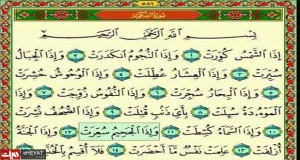 ٥٨٦
سُورَةُ التَّكْوِيرِ
بِسْمِ اللَّهِ الرَّحْمَٰنِ الرَّحِيمِ
إِذَا الشَّمْسُ كُوِّرَتْ ١ وَإِذَا النُّجُومُ انكَدَرَتْ ٢ وَإِذَا الْجِبَالُ
سُيِّرَتْ ٣ وَإِذَا الْعِشَارُ عُطِّلَتْ ٤ وَإِذَا الْوُحُوشُ حُشِرَتْ
٥ وَإِذَا الْبِحَارُ سُجِّرَتْ ٦ وَإِذَا النُّفُوسُ زُوِّجَتْ ٧ وَإِذَا
الْمَوْءُدَةُ سُئِلَتْ ٨ بِأَيِّ ذَنْبٍ قُتِلَتْ ٩ وَإِذَا الصُّحُفُ نُشِرَتْ
١٠ وَإِذَا السَّمَاءُ كُشِطَتْ ١١ وَإِذَا الْجَحِيمُ سُعِّرَتْ ١٢ وَإِذَا الْجَنَّةُ
أُزْلِفَتْ ١٣ عَلِمَتْ نَفْسٌ مَا أَحْضَرَتْ ١٤ فَلَا أُقْسِمُ بِالْخُنَّسِ